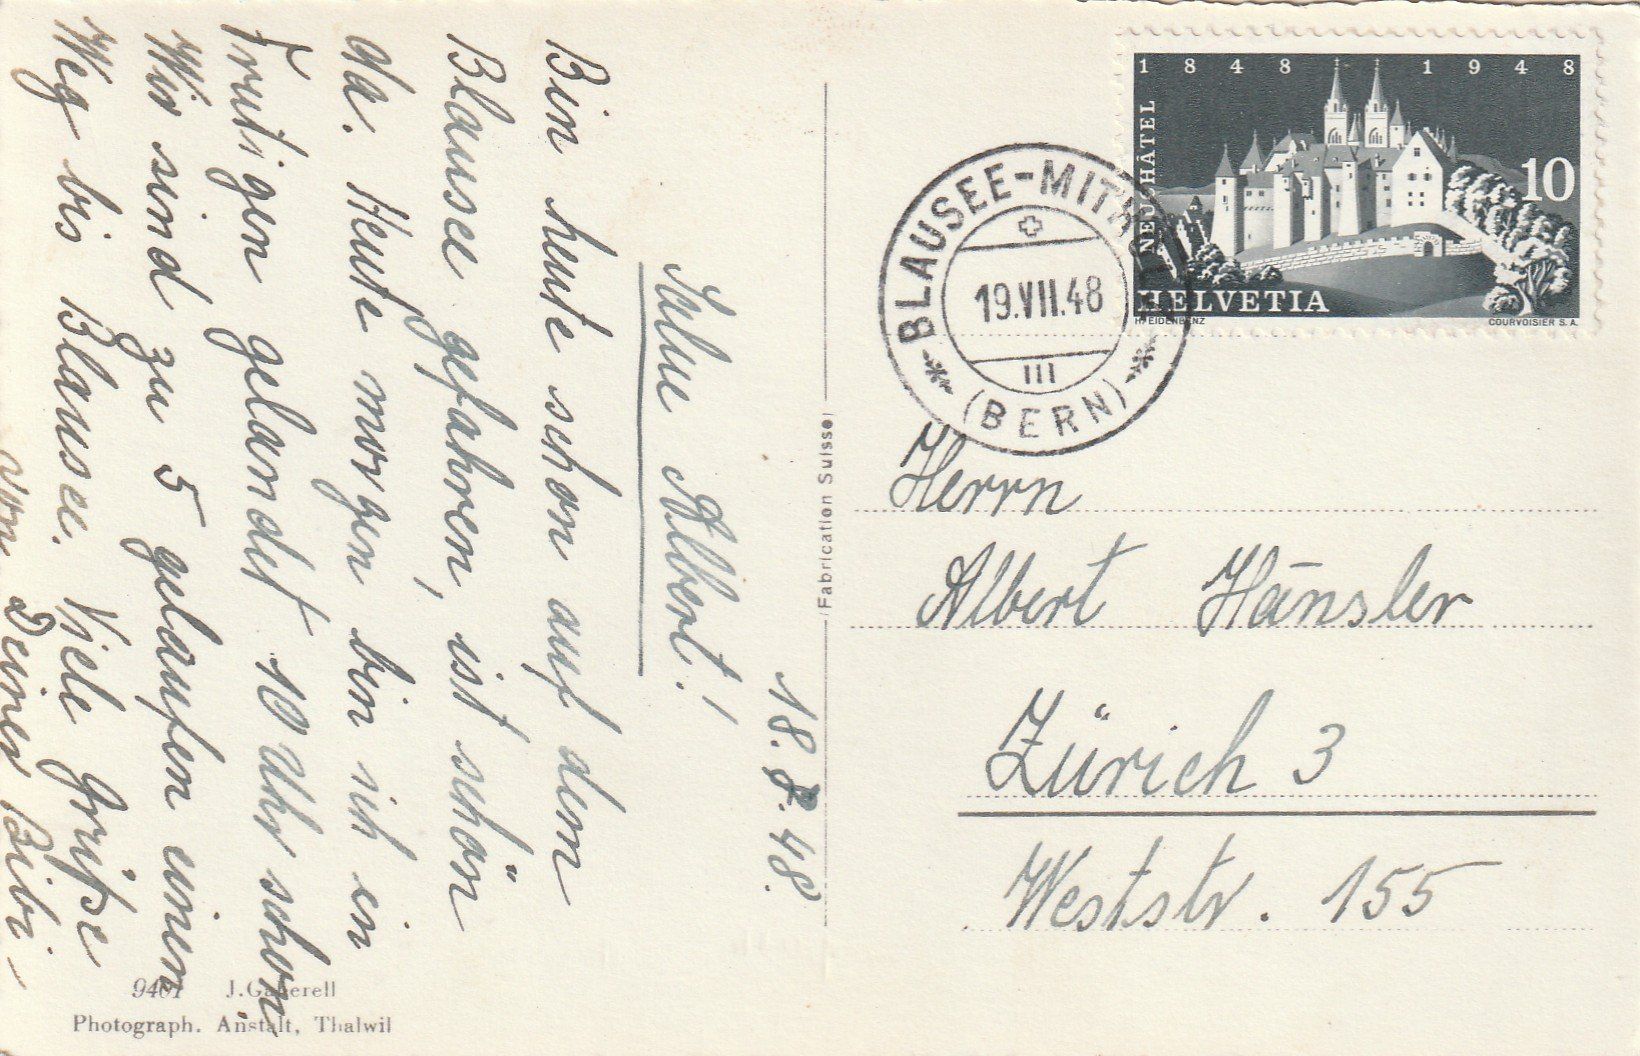 18.7.48.
Salue Albert!
Bin heute schon auf dem
Blausee gefahren, ist schön
da. Heute morgen bin ich in
Frutigen gelandet 10 Uhr schon
Wir sind zu 5 gelaufen einen
Weg bis Blausee. Viele Grüße
von Deiner Bibi-
9401 J. Gaberell
Photograph. Anstalt, Thalwil
Fabrication Suisse
1848 1948
NEUCHÂTEL
10
HELVETIA
H. EIDENBENZ COURVOISIER S.A.
BLAUSEE-MITHOLZ
19.VII.48
III
(BERN)
Herrn
Albert Hänsler
Zürich 3
Weststr. 155